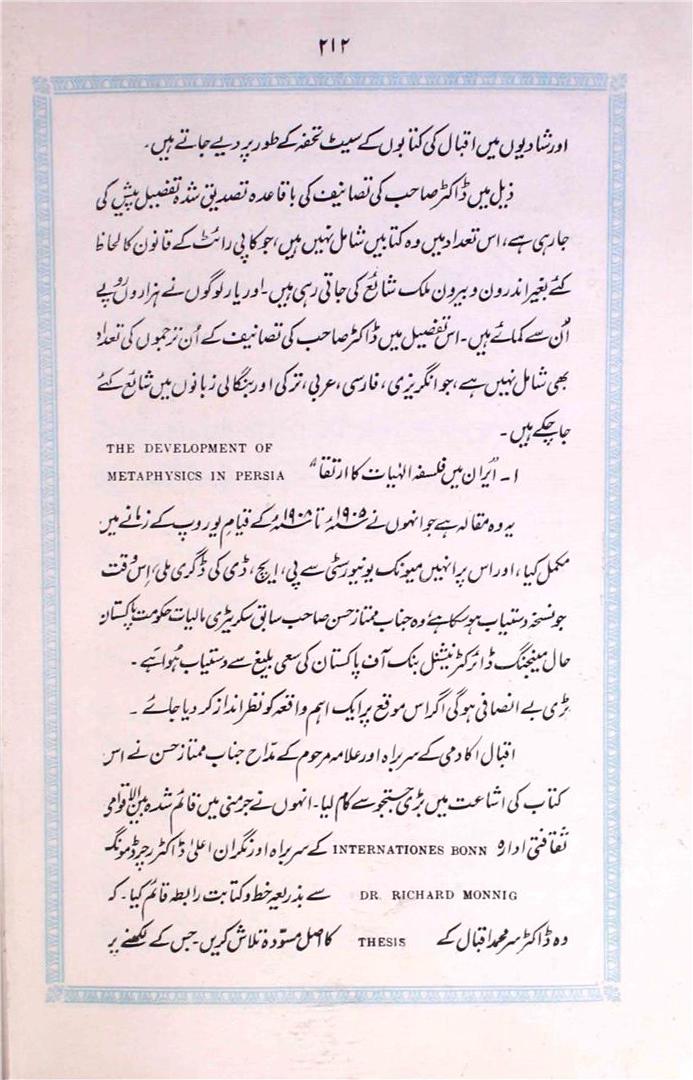 ۲۱۲
اور شادیوں میں اقبال کی کتابوں کے سیٹ تحفہ کے طور پر دیے جاتے ہیں۔
ذیل میں ڈاکٹر صاحب کی تصانیف کی باقاعدہ تصدیق شدہ تفصیل پیش کی
جارہی ہے، اس تعداد میں وہ کتابیں شامل نہیں ہیں، جو کاپی رائٹ کے قانون کا لحاظ
کئے بغیر اندرون و بیرون ملک شائع کی جاتی رہی ہیں۔ اور یار لوگوں نے ہزاروں روپے
اُن سے کمائے ہیں۔ اس تفصیل میں ڈاکٹر صاحب کی تصانیف کے اُن ترجموں کی تعداد
بھی شامل نہیں ہے، جو انگریزی، فارسی، عربی، ترکی اور بنگالی زبانوں میں شائع کئے
جاچکے ہیں۔
۱۔ "ایران میں فلسفہ الہٰیات کا ارتقا" THE DEVELOPMENT OF
METAPHYSICS IN PERSIA
یہ وہ مقالہ ہے جو انہوں نے ۱۹۰۵ء تا ۱۹۰۸ء کے قیام یوروپ کے زمانے میں
مکمل کیا، اور اس پر انہیں میونک یونیورسٹی سے پی، ایچ، ڈی کی ڈگری ملی، اِس وقت
جو نسخہ دستیاب ہو سکا ہے وہ جناب ممتاز حسن صاحب سابق سکریٹری مالیات حکومت پاکستان
حال مینجنگ ڈائرکٹر نیشنل بنک آف پاکستان کی سعی بلیغ سے دستیاب ہُوا ہے۔
بڑی بے انصافی ہوگی اگر اس موقع پر ایک اہم واقعہ کو نظر انداز کر دیا جائے۔
اقبال اکادمی کے سربراہ اور علامہ مرحوم کے مدّاح جناب ممتاز حسن نے اس
کتاب کی اشاعت میں بڑی جستجو سے کام لیا۔ انہوں نے جرمنی میں قائم شدہ بین الاقوامی
ثقافتی ادارہ INTERNATIONES BONN کے سربراہ اور نگران اعلیٰ ڈاکٹر رچرڈ مونگ
DR. RICHARD MONNIG سے بذریعہ خط و کتابت رابطہ قائم کیا۔ کہ
وہ ڈاکٹر سر محمد اقبال کے THESIS کا اصل مسوّدہ تلاش کریں جس کے لکھنے پر